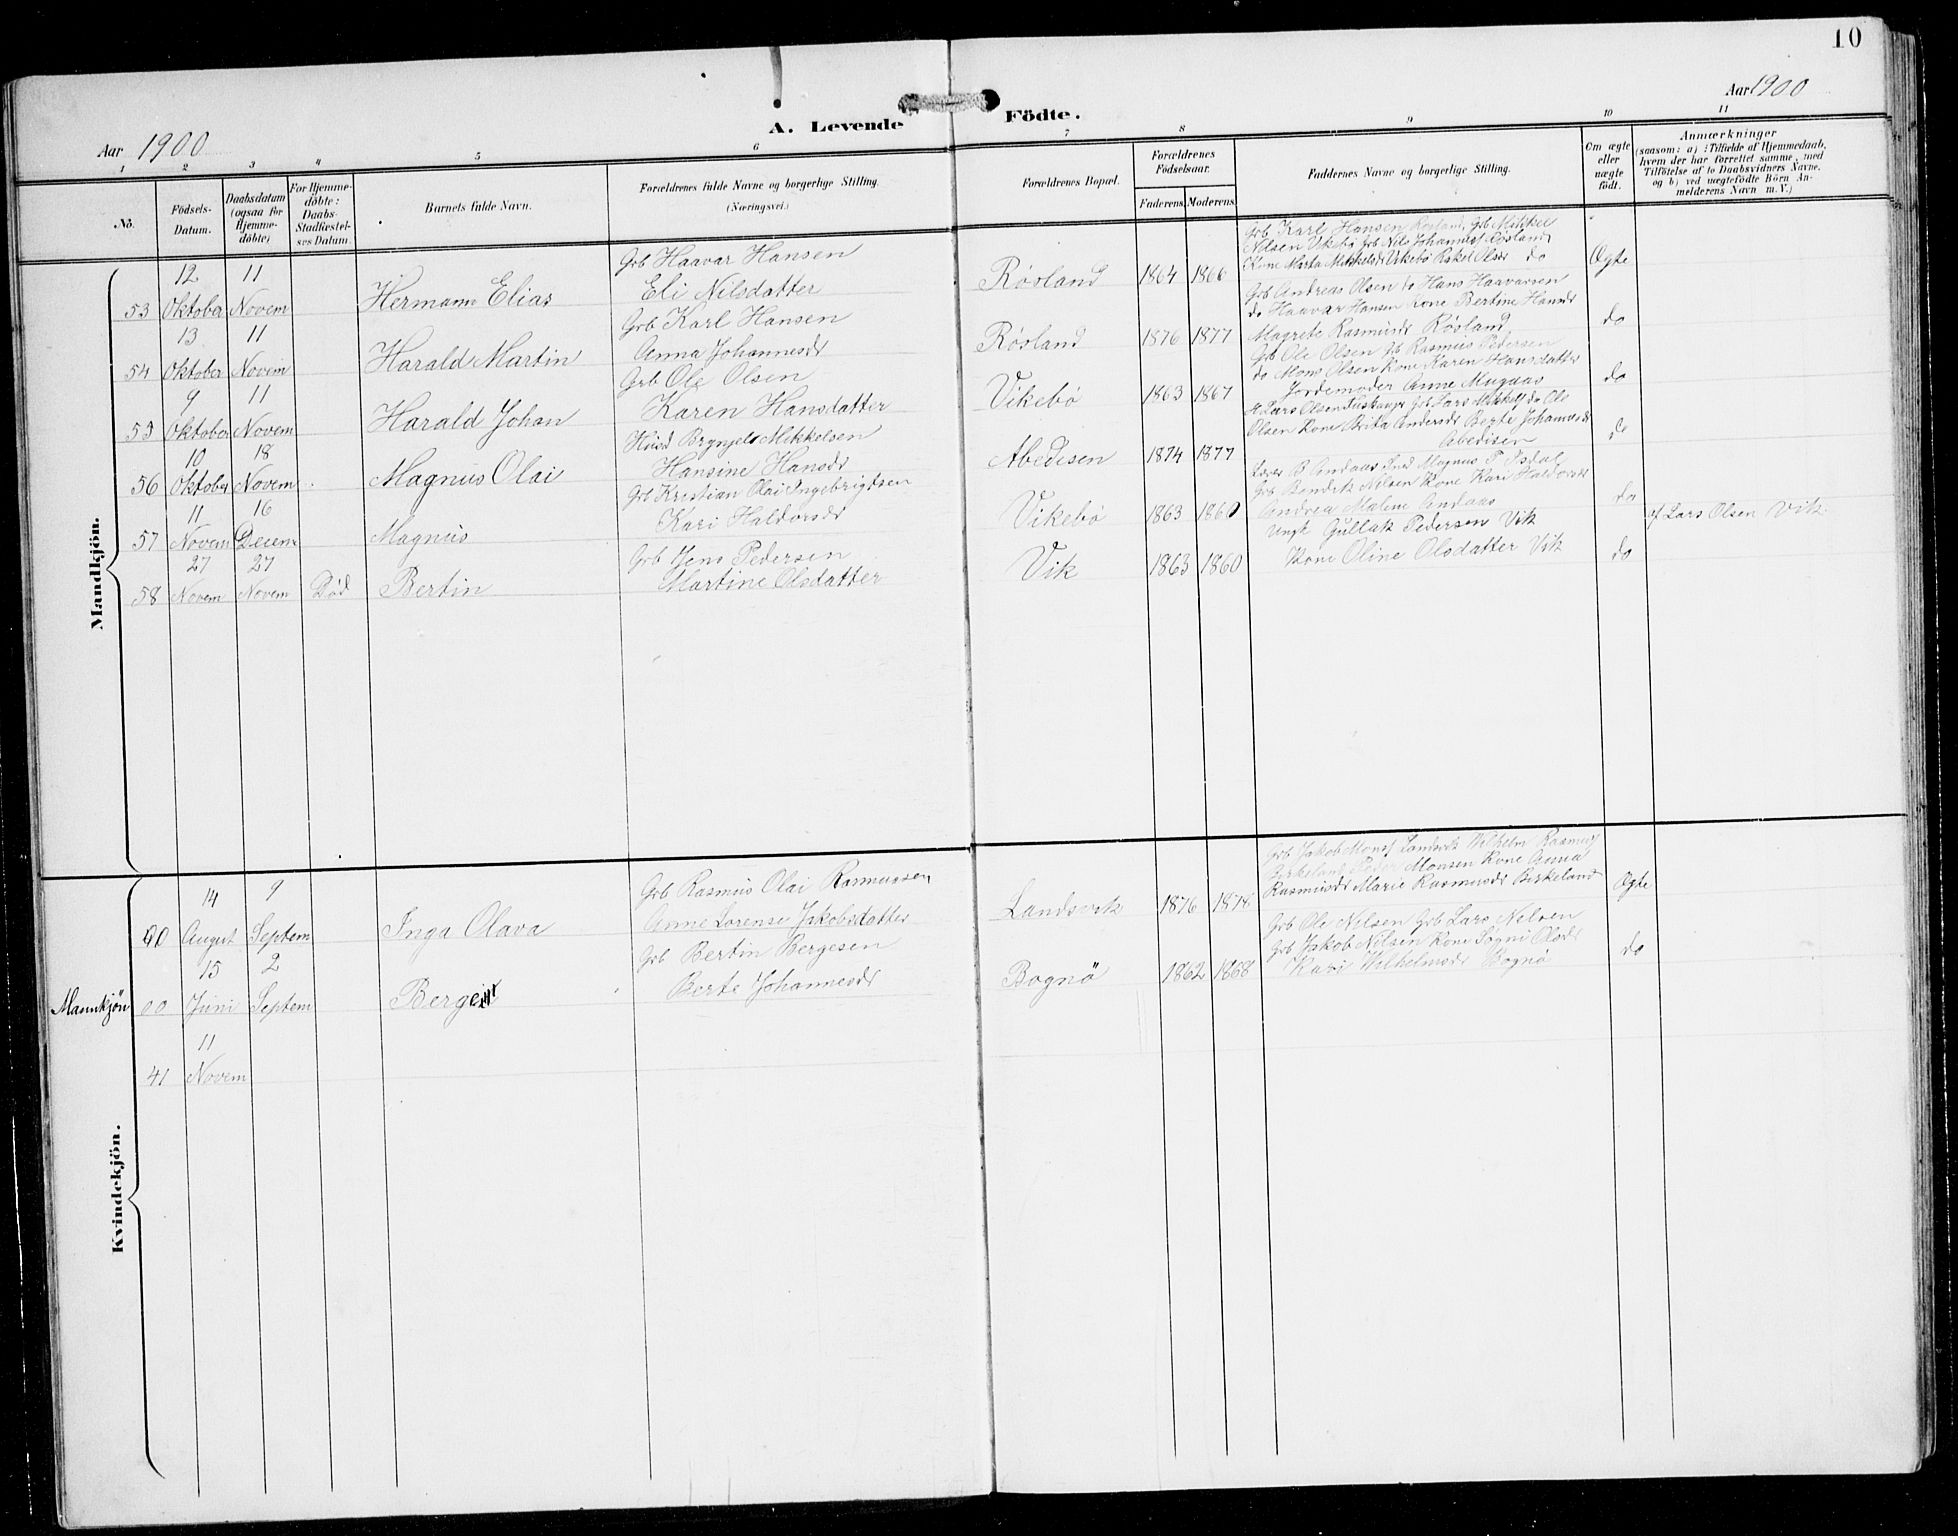 10
Aar 1900
A. Levende Födte.
Aar 1900
1 2 3 4 5 6 7 8 9 10 11
No.
Födsels-Datum.
Daabsdatum (ogsaa for Hjemme-döbte)
For Hjemme-döbte: Daabs-Stadfæstel-ses Datum.
Barnets fulde Navn.
Forældrenes fulde Navne og borgerlige Stilling.
(Næringsvei.)
Forældrenes Bopæl.
Forældrenes Födselsaar.
Faderens. Moderens.
Faddernes Navne og borgerlige Stilling.
Om ægte eller uægte født.
Anmærkninger
(saasom: a) i Tilfælde af Hjemmedaab,
hvem der har forrettet samme, med
Tilföielse af to Daabsvidners Navne,
og b) ved uægtefödte Börn An-
melderens Navn m. V.)
Mandkjön.
53 12 Oktober 11 Novem Hermann Elias
Grb Haavar Hansen
Eli Nilsdatter
Røsland 1864 1866
Grb Karl Hansen Røsland, Grb Mikkel
Nilsen Vikebø Grb Nils Johannes Røsland
Kone Marta Mikkelsdr Vikebø Rakel Olsdr do
Ægte
54 13 Oktober 11 Novem Harald Martin
Grb Karl Hansen
Anna Johannesdr
Røsland 1876 1877
Grb Andreas Olsen do Hans Haavarsen
do Haavar Hansen Kone Bertine Hansdr
Magrete Rasmusdr Røsland
do
55 9 Oktober 11 Novem Harald Johan
Grb Ole Olsen
Karen Hansdatter
Vikebø 1863 1867
Grb Ole Olsen Grb Rasmus Pedersen
do Mons Olsen Kone Karen Hansdatter
Jordemoder Anne Mugaas
do
56 10 Oktober 18 Novem Magnus Olai
Husd Brynjel Mikkelsen
Hansine Hansdr
Abedisen 1874 1877
Lars Olsen Grb Lars do Ole
Olsen Kone Brita Andersdr Berte Johannesdr
Abedisen
do
57 11 Novem 16 Decem Magnus
Grb Kristian Olai Ingebrigtsen
Kari Haldorsdr
Vikebø 1863 1860
Lærer B Andaas Magnus P Isdal
Grb Bendik Nilsen Kone Kari Haldorsdr
Andrea Maline Andaas
do
58 27 Novem 27 Novem Død Bertin
Grb Jens Pedersen
Martine Olsdatter
Vik 1863 1860
Ungk Gullak Pedersen Vik
Kone Oline Olsdatter Vik
do
af Lars Olsen Vik
Kvindekjön.
00 14 August 9 Septem Inga Olava
Grb Rasmus Olai Rasmussen
Anne Lorense Jakobsdatter
Landsvik 1876 1878
Grb Jakob Mons Landsvik Vilhelm Rasmus
Birkeland Peder Monsen Kone Anna
Rasmusdr Marie Rasmusdr Birkeland
Ægte
Mannkjön 00 15 Juni 2 Septem Bergeut
Grb Bertin Bergesen
Berte Johannesdr
Bognö 1862 1868
Grb Ole Nilsen Grb Lars Nilsen
Grb Jakob Nilsen Kone Sogni Olsdr
Kari Vilhelmsdr Bognø
do
41 11 Novem